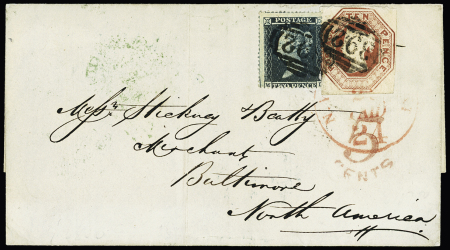 POSTAGE
TWO PENCE
TEN PENCE
Messrs Stickney & Beatty
Merchants
Baltimore
North America
PAID
CENTS